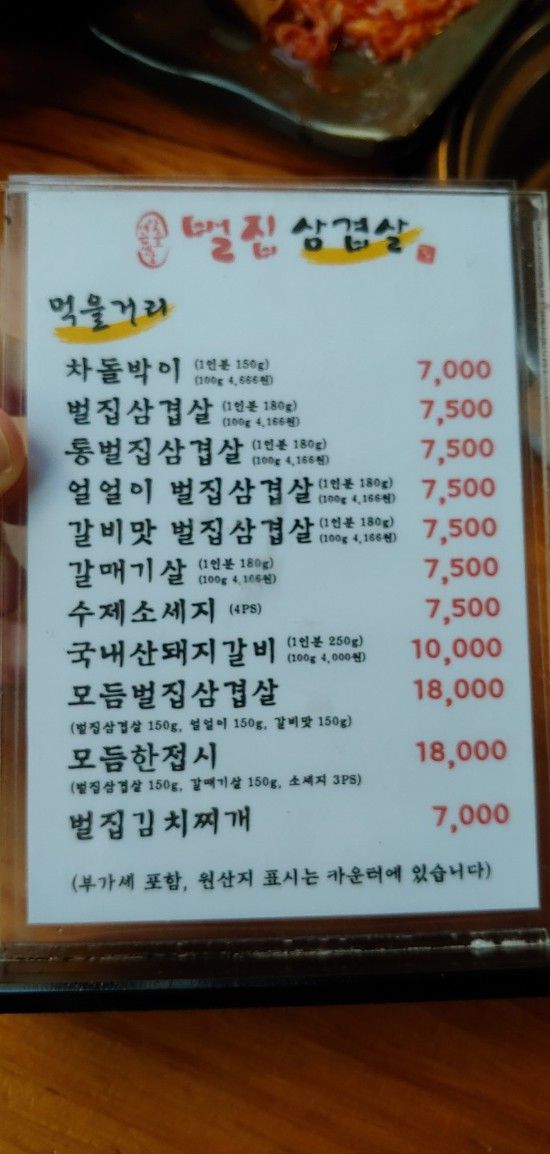 벌집 삼겹살
먹을거리
차돌박이 (1인분 150g) 7,000
(100g 4,666원)
벌집삼겹살 (1인분 180g) 7,500
(100g 4,166원)
통벌집삼겹살 (1인분 180g) 7,500
(100g 4,166원)
얼얼이 벌집삼겹살 (1인분 180g) 7,500
(100g 4,166원)
갈비맛 벌집삼겹살 (1인분 180g) 7,500
(100g 4,166원)
갈매기살 (1인분 180g) 7,500
(100g 4,166원)
수제소세지 (4PS) 7,500
국내산돼지갈비 (1인분 250g) 10,000
(100g 4,000원)
모듬벌집삼겹살 18,000
(벌집삼겹살 150g, 얼얼이 150g, 갈비맛 150g)
모듬한접시 18,000
(벌집삼겹살 150g, 갈매기살 150g, 소세지 3PS)
벌집김치찌개 7,000
(부가세 포함, 원산지 표시는 카운터에 있습니다)